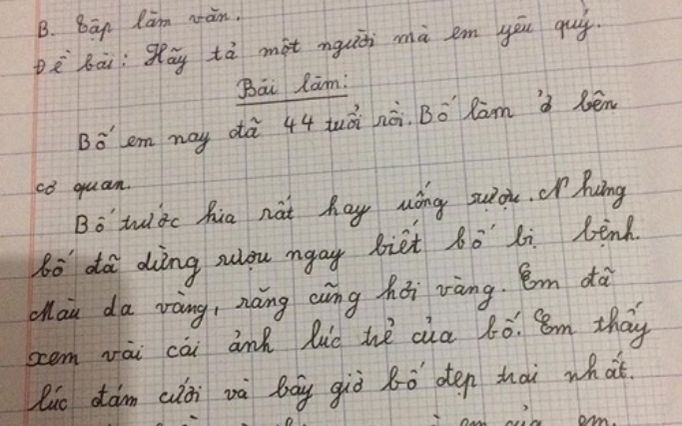 B. Tập làm văn.
Đề bài: Hãy tả một người mà em yêu quý.
Bài làm:
Bố em nay đã 44 tuổi rồi. Bố làm ở bên
cơ quan.
Bố trước kia rất hay uống rượu. Nhưng
bố đã dừng rượu ngay biết bố bị bệnh.
Màu da vàng, răng cũng hơi vàng. Em đã
xem vài cái ảnh lúc trẻ của bố. Em thấy
lúc đám cưới và bây giờ bố đẹp trai nhất.
của em.